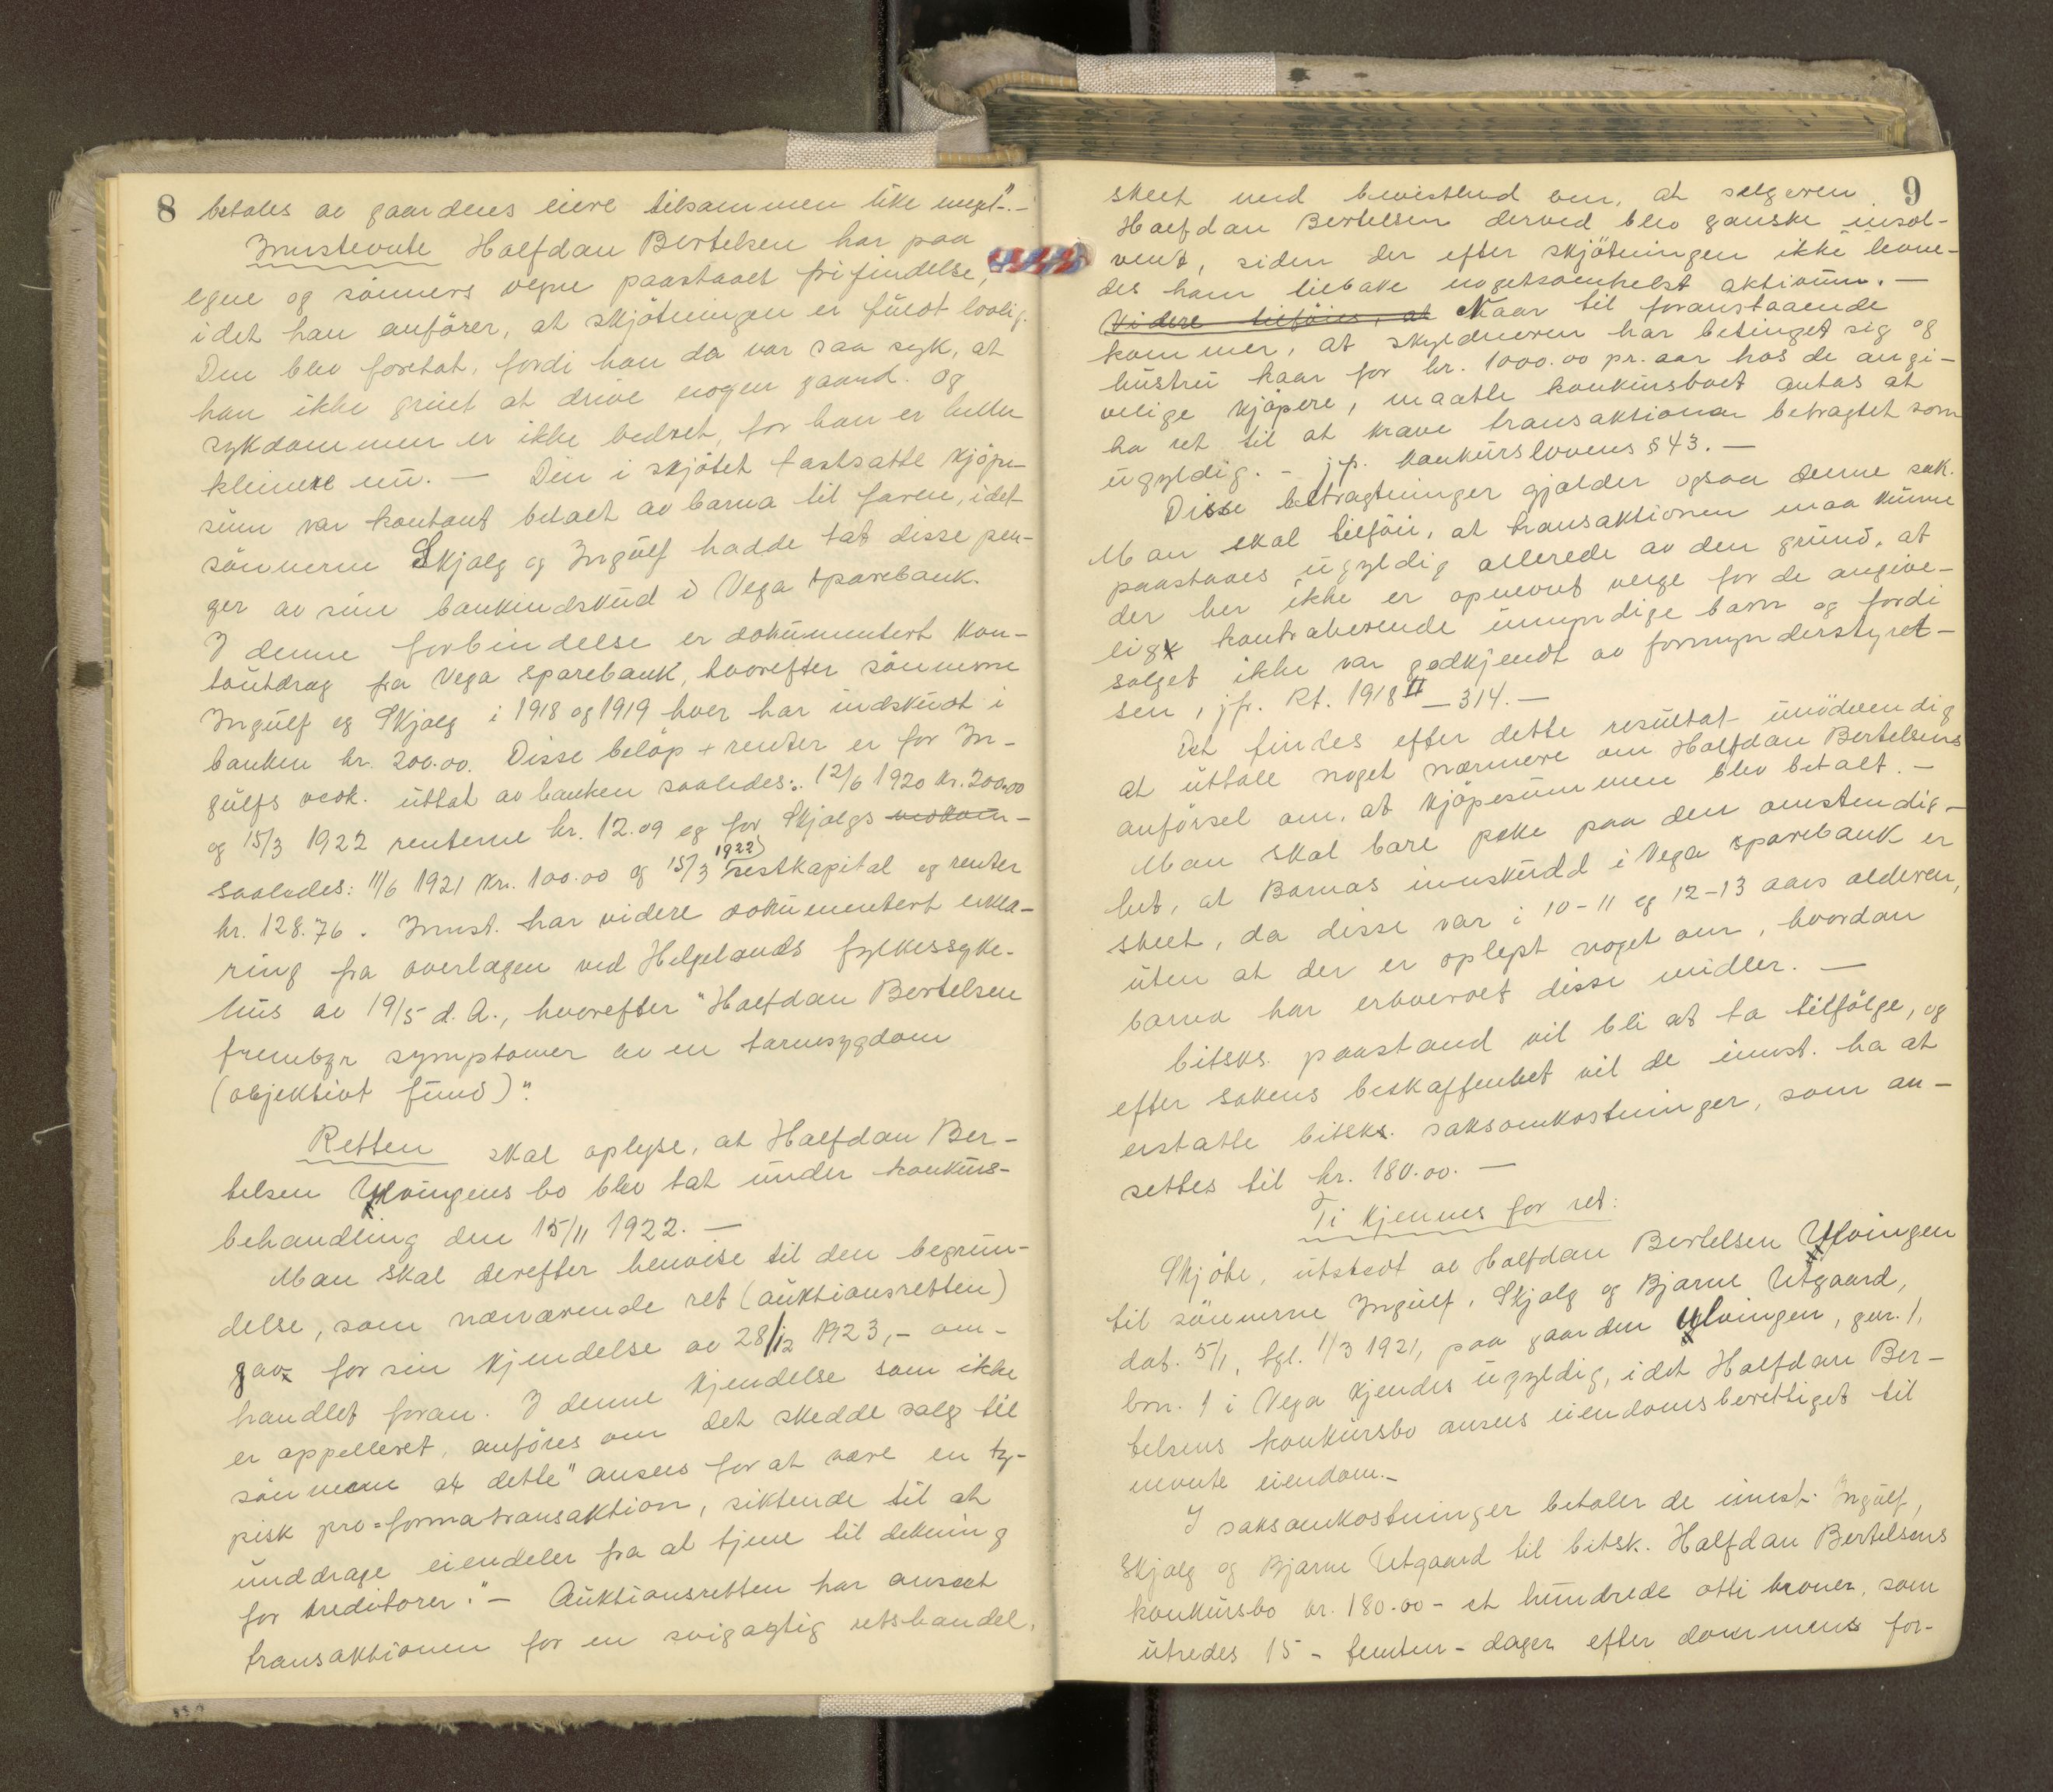 8
betales av gaardens eiere tilsammen like meget".-
Innstevnte Halfdan Bertelsen har paa
egne og sönners vegne paastaaet frifindelse,
idet han anförer, at skjötningen er fuldt lovlig.
Den blev foretat, fordi han da var saa syk, at
han ikke greiet at drive nogen gaard. og
sykdommen er ikke bedret, for han er heller
kleinere nu. — Den i skjötet fastsatte kjöpe-
sum var kontant betalt av barna til faren, idet
sönnerne Skjalg og Ingulf hadde tat disse pen-
ger av sine bankindskud i Vega sparebank.
I denne forbindelse er dokumentert kon-
toutdrag fra Vega sparebank, hvorefter sönnerne
Ingulf og Skjalg i 1918 og 1919 hver har indskudt i
banken kr. 200.00. Disse belöp + renter er for In-
gulfs vedk. uttat av banken saaledes: 12/6 1920 kr. 200.00
og 15/3 1922 renterne kr. 12.09 og for Skjalgs vedkom-
saaledes: 11/6 1921 kr. 100.00 og 15/3 1922 restkapital og renter
kr. 128.76. Innst. har videre dokumentert erklæ-
ring fra overlægen ved Helgelands fylkessyke-
hus av 19/5 d. A., hvorefter "Halfdan Bertelsen
frembyr symptomer av en tarmsygdom
(objektivt fund)".
Retten skal oplyse, at Halfdan Ber-
telsen Ylvingens bo blev tat under konkurs-
behandling den 15/11 1922. —
Man skal derefter henvise til den begrun-
delse, som nærværende ret (auktionsretten)
gav for sin kjendelse av 28/12 1923, - om-
handlet foran. I denne kjendelse som ikke
er appelleret, anföres om det skedde salg til
sönnerne at dette "ansees for at være en ty-
pisk pro=formatransaktion, siktende til at
unddrage eiendeler fra at tjene til dekning
for kreditorer". — Auktionsretten har anseet
transaktionen for en svigagtig retshandel,
9
skeet med bevissthed om, at selgeren
Halfdan Bertelsen derved blev ganske insol-
vent, siden der efter skjötningen ikke levne-
des ham tilbake nogetsomhelst aktivum. —
Videre tilföies, at Naar til foranstaaende
kommer, at skyldneren har betinget sig og
hustru kaar for kr. 1000.00 pr. aar hos de angi-
velige kjöpere, maatte konkursboet antas at
ha ret til at kræve transaktionen betragtet som
ugyldig. - jfr. konkurslovens § 43. —
Disse betragtninger gjælder ogsaa denne sak.
Man skal tilföie, at transaktionen maa kunne
paastaaes ugyldig allerede av den grund, at
der her ikke er opnevnt verge for de angive-
lig kontraherende umyndige barn og fordi
salget ikke var godkjendt av formynderstyret-
sen, jfr. Rt. 1918 II — 314. —
Det findes efter dette resultat unödvendig
at uttale noget nærmere om Halfdan Bertelsens
anförsel om, at kjöpesummen blev betalt. —
Man skal bare peke paa den omstendig-
het, at Barnas innskudd i Vega sparebank er
skeet, da disse var i 10-11 og 12-13 aars alderen,
uten at der er oplyst noget om, hvordan
barna har erhvervet disse midler. —
Citsks. paastand vil bli at ta tilfölge, og
efter sakens beskaffenhet vil de innst. ha at
erstatte citsks. saksomkostninger, som an-
settes til kr. 180.00. —
Ti kjennes for ret:
Skjöte, utstedt av Halfdan Bertelsen Ylvingen
til sönnerne Ingulf, Skjalg og Bjarne Utgaard,
dat. 5/1, tgl. 1/3 1921, paa gaarden Ylvingen, gnr. 1,
brn. 1 i Vega kjendes ugyldig, idet Halfdan Ber-
telsens konkursbo ansees eiendomsberettiget til
nevnte eiendom.—
I saksomkostninger betaler de innst. Ingulf,
Skjalg og Bjarne Utgaard til citsk. Halfdan Bertelsens
konkursbo kr. 180.00 - et hundrede otti kroner, som
utredes 15 - femten - dager efter dommens for-